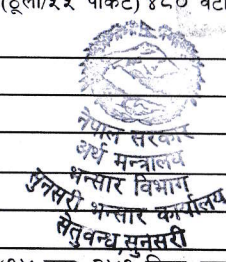 (ठूला/२२ पाकेट) ४८० वटा
नेपाल सरकार
अर्थ मन्त्रालय
भन्सार विभाग
सुनसरी भन्सार कार्यालय
सेतुवन्ध, सुनसरी